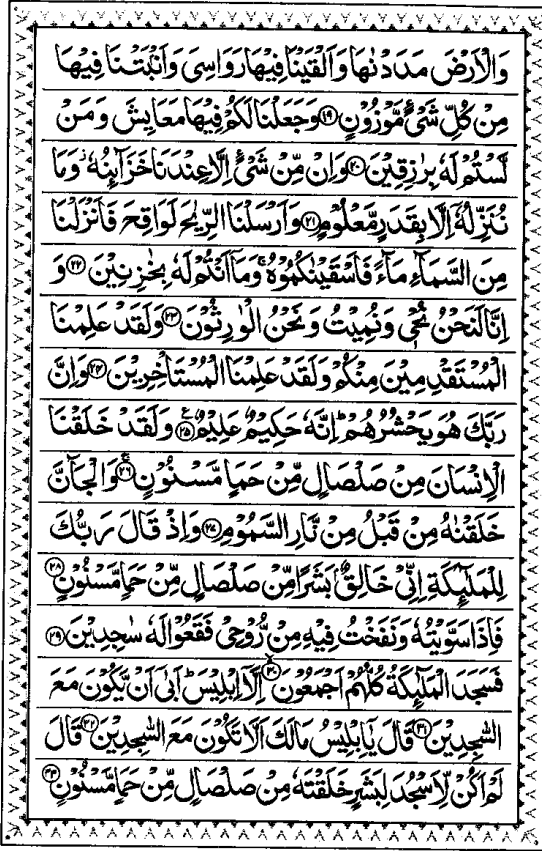 وَالْاَرْضَ مَدَدْنٰهَا وَاَلْقَيْنَا فِيْهَا رَوَاسِىَ وَاَنْۢبَتْنَا فِيْهَا
مِنْ كُلِّ شَىْءٍ مَّوْزُوْنٍ ۝۱۹ وَجَعَلْنَا لَكُمْ فِيْهَا مَعَايِشَ وَمَنْ
لَّسْتُمْ لَهٗ بِرٰزِقِيْنَ ۝۲۰ وَاِنْ مِّنْ شَىْءٍ اِلَّا عِنْدَنَا خَزَآئِنُهٗ ۫ وَمَا
نُنَزِّلُهٗۤ اِلَّا بِقَدَرٍ مَّعْلُوْمٍ ۝۲۱ وَاَرْسَلْنَا الرِّيٰحَ لَوَاقِحَ فَاَنْزَلْنَا
مِنَ السَّمَآءِ مَآءً فَاَسْقَيْنٰكُمُوْهُ ۚ وَمَاۤ اَنْتُمْ لَهٗ بِخٰزِنِيْنَ ۝۲۲ وَ
اِنَّا لَنَحْنُ نُحْىٖ وَنُمِيْتُ وَنَحْنُ الْوٰرِثُوْنَ ۝۲۳ وَلَقَدْ عَلِمْنَا
الْمُسْتَقْدِمِيْنَ مِنْكُمْ وَلَقَدْ عَلِمْنَا الْمُسْتَاْخِرِيْنَ ۝۲۴ وَاِنَّ
رَبَّكَ هُوَ يَحْشُرُهُمْ ؕ اِنَّهٗ حَكِيْمٌ عَلِيْمٌ ۝۲۵ ع وَلَقَدْ خَلَقْنَا
الْاِنْسَانَ مِنْ صَلْصَالٍ مِّنْ حَمَاٍ مَّسْنُوْنٍ ۝۲۶ ۚ وَالْجَآنَّ
خَلَقْنٰهُ مِنْ قَبْلُ مِنْ نَّارِ السَّمُوْمِ ۝۲۷ وَاِذْ قَالَ رَبُّكَ
لِلْمَلٰٓئِكَةِ اِنِّىْ خَالِقٌۢ بَشَرًا مِّنْ صَلْصَالٍ مِّنْ حَمَاٍ مَّسْنُوْنٍ ۝۲۸
فَاِذَا سَوَّيْتُهٗ وَنَفَخْتُ فِيْهِ مِنْ رُّوْحِىْ فَقَعُوْا لَهٗ سٰجِدِيْنَ ۝۲۹
فَسَجَدَ الْمَلٰٓئِكَةُ كُلُّهُمْ اَجْمَعُوْنَ ۝۳۰ ۙ اِلَّاۤ اِبْلِيْسَ ؕ اَبٰٓى اَنْ يَّكُوْنَ مَعَ
السّٰجِدِيْنَ ۝۳۱ قَالَ يٰۤاِبْلِيْسُ مَالَكَ اَلَّا تَكُوْنَ مَعَ السّٰجِدِيْنَ ۝۳۲ قَالَ
لَمْ اَكُنْ لِّاَسْجُدَ لِبَشَرٍ خَلَقْتَهٗ مِنْ صَلْصَالٍ مِّنْ حَمَاٍ مَّسْنُوْنٍ ۝۳۳